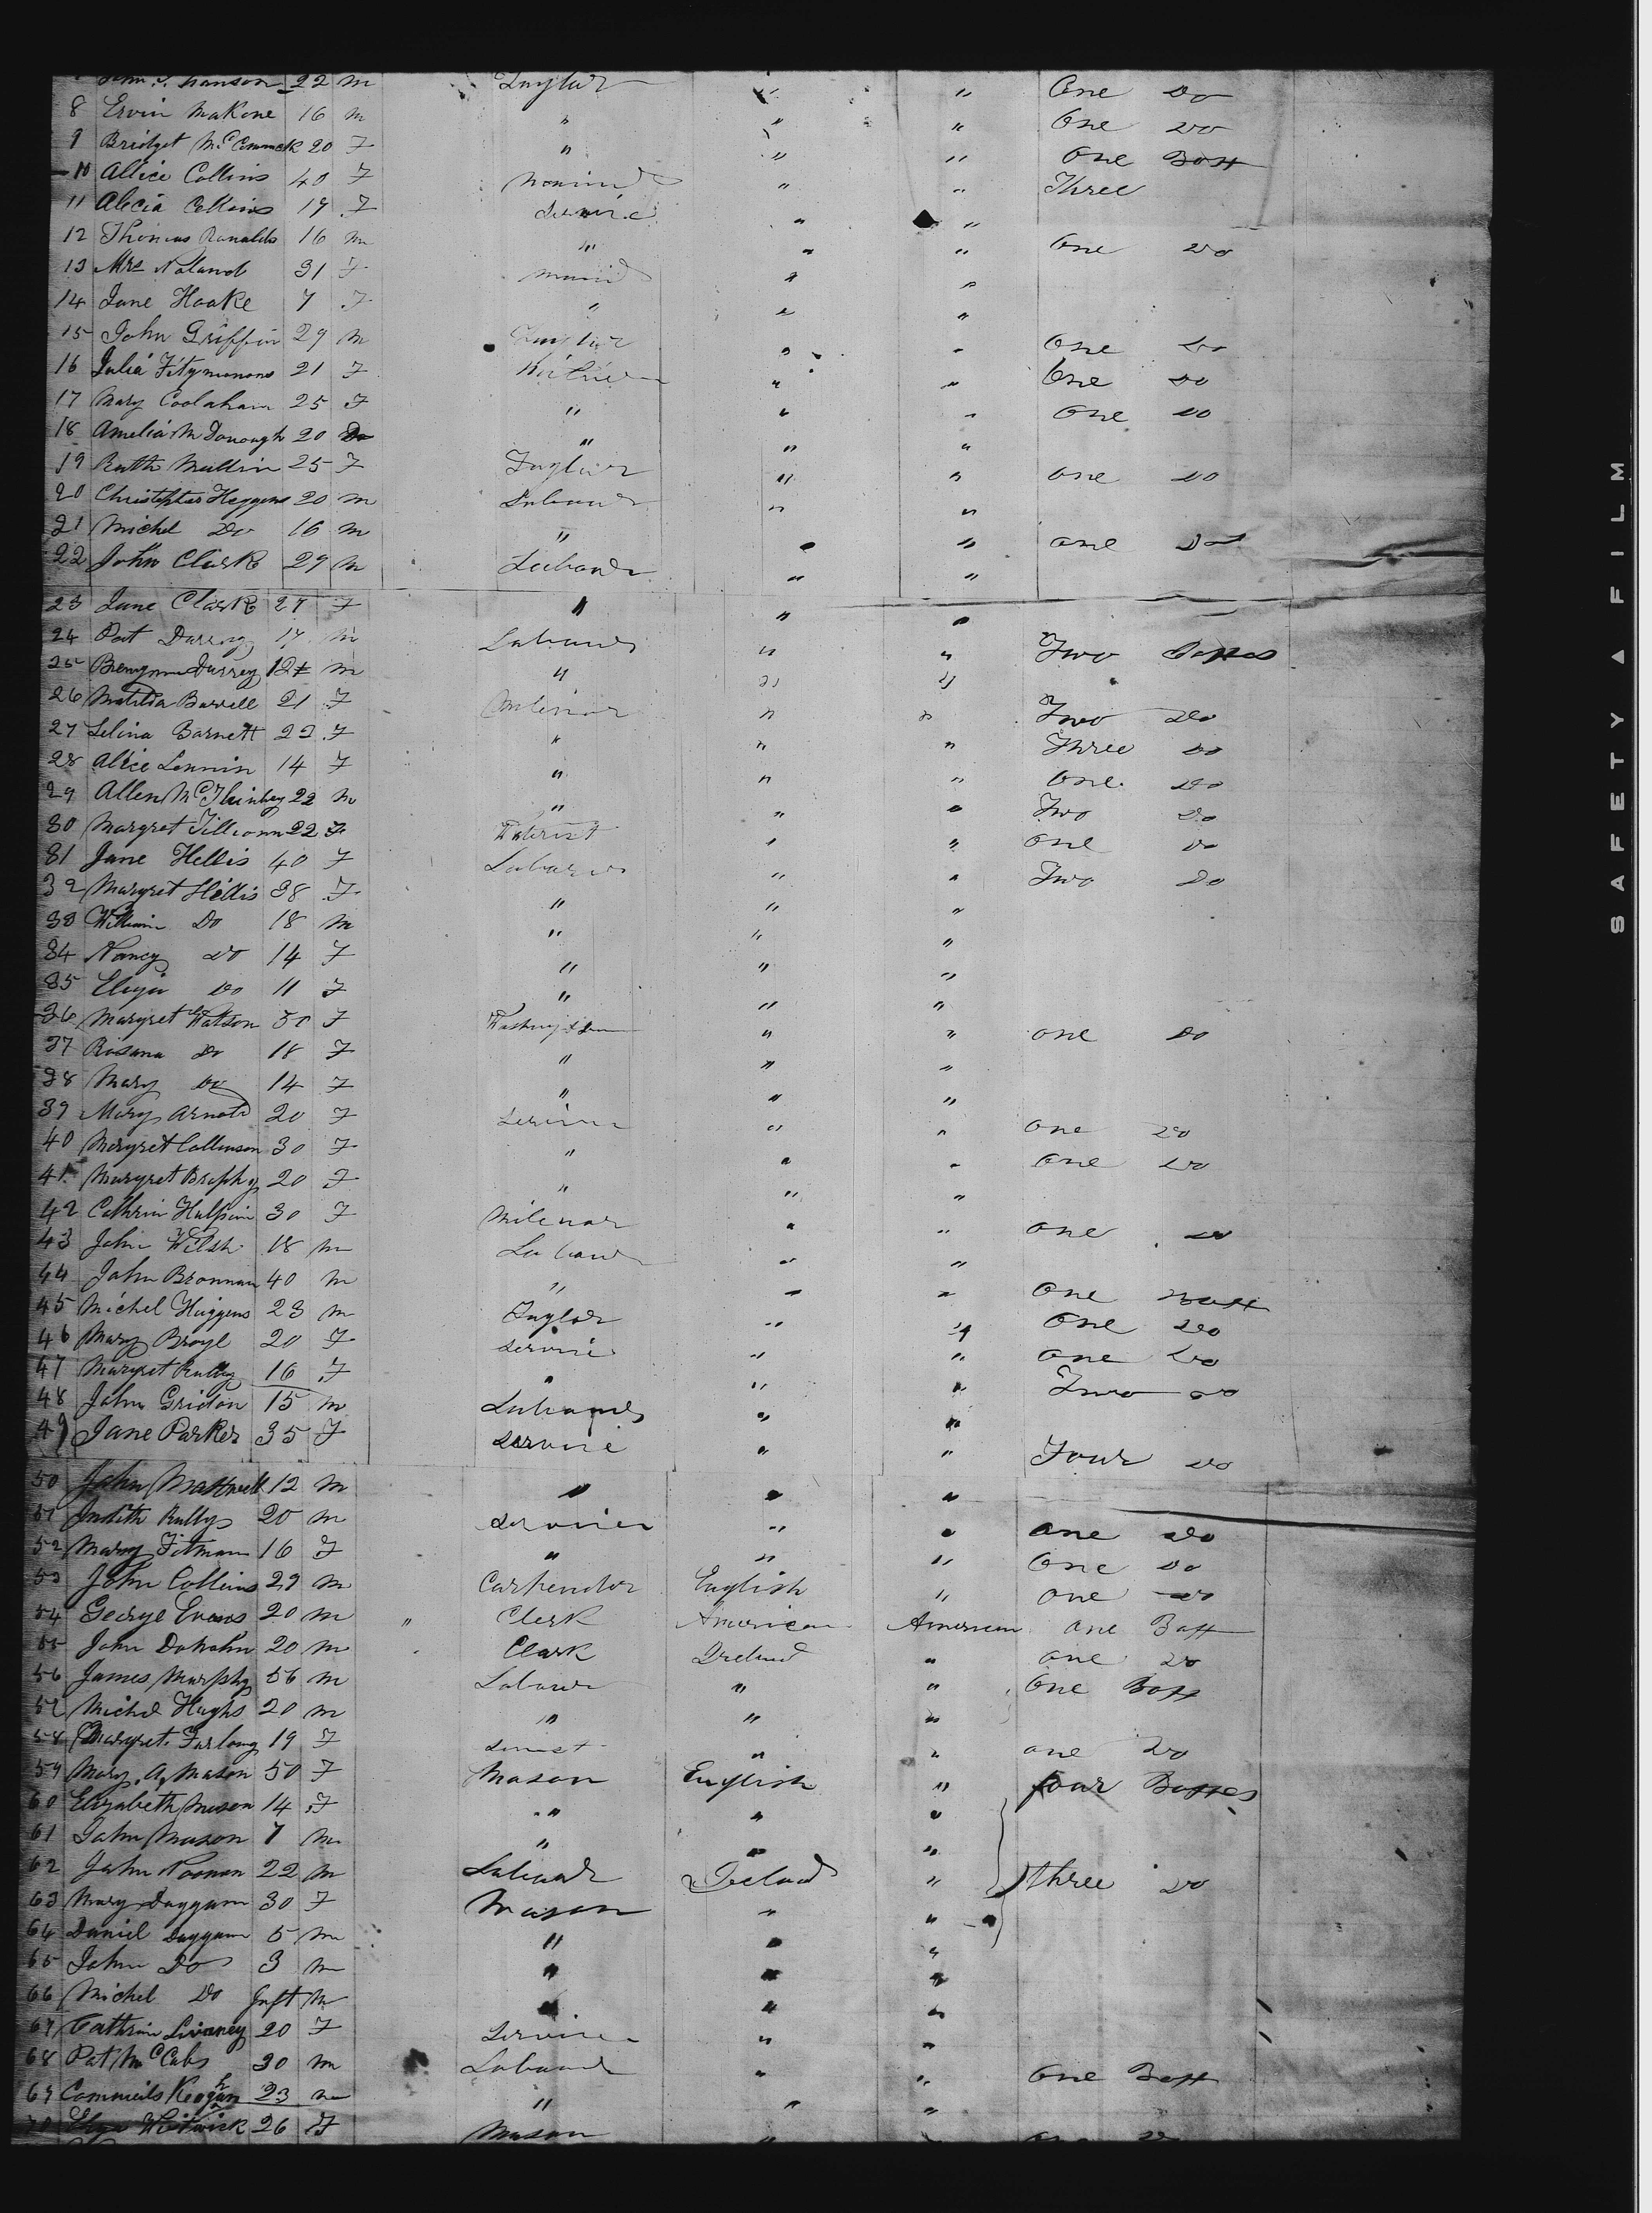 22 m Taylor " " One Do
8 Ervin Makone 16 m " " " One Do
9 Bridget McCommck 20 F " " " One Box
10 Allice Collins 40 F " " Three
11 Alicia Collins 19 F Servic " "
12 Thomas Ranalds 16 m " " " One Do
13 Mrs Noland 31 F " "
14 Jane Hooke 7 F " " "
15 John Griffin 29 m " " One Do
16 Julia Fitzmonons 21 F " " One Do
17 Mary Coolahan 25 F " " " One Do
18 Amelia McDonough 20 Do " " "
19 Ruth Mullin 25 F Taylor " " One Do
20 Christopher Heggens 20 m Labourer " "
21 Michel Do 16 m " " " One Do
22 John Clark 29 m Labourer " "
23 Jane Clark 27 F " " "
24 Pat Darrey 17 m Labourer " " Two Boxes
25 Darrey 12 m " " "
26 Matilda Barrell 21 F Milinar " " Two Do
27 Selina Barnett 22 F " " " Three Do
28 Alice Lennin 14 F " " " One Do
29 Allen 22 m " " " Two Do
30 Margret 22 F " " One Do
31 Jane Hellis 40 F Labourer " " Two Do
32 Margret Hellis 38 F " " "
33 William Do 18 m " " "
34 Nancy Do 14 F " " "
35 Eliza Do 11 F " " "
36 Margret Watson 50 F " " One Do
37 Rosana Do 18 F " " "
38 Mary Do 14 F " " "
39 Mary Arnold 20 F Service " " One Do
40 Margret Collinson 30 F " " " One Do
41 Margret Brophy 20 F " " "
42 Cathrin Halpin 30 F Milenar " " One Do
43 John Welsh 18 m Labourer " "
44 John Bronnan 40 m " " " One Box
45 Michel Huggens 23 m Taylor " " One Do
46 Mary Broyl 20 F Service " " One Do
47 Margret Rully 16 F " " " Two Do
48 John Gridon 15 m Labourer " "
49 Jane Parker 35 F Service " " Four Do
50 John Maxwell 12 m " " "
51 Judith Rullys 20 m Service " " One Do
52 Mary Fitman 16 F " " " One Do
53 John Collins 29 m Carpendor English " One Do
54 George Evans 20 m " Clerk American American One Box
55 John 20 m Clark Ireland " One Do
56 James Murphy 56 m Labour " " One Box
57 Michel Hughs 20 m " " "
58 Margret Furlong 19 F " " One Do
59 Mary A. Mason 50 F Mason English " four Boxxes
60 Elizabeth Mason 14 F " " "
61 John Mason 7 m " " "
62 John Noonan 22 m Labour Ireland " three Do
63 Mary Daggam 30 F Mason " "
64 Daniel Daggam 5 m " " "
65 John Do 3 m " " "
66 Michel Do Inft m " " "
67 Cathrin Livaney 20 F Service " "
68 Pat McCabs 30 m Labour " " One Box
69 Keoghan 23 m " " "
70 Whitwick 26 F Mason "
SAFETY ▲ FILM